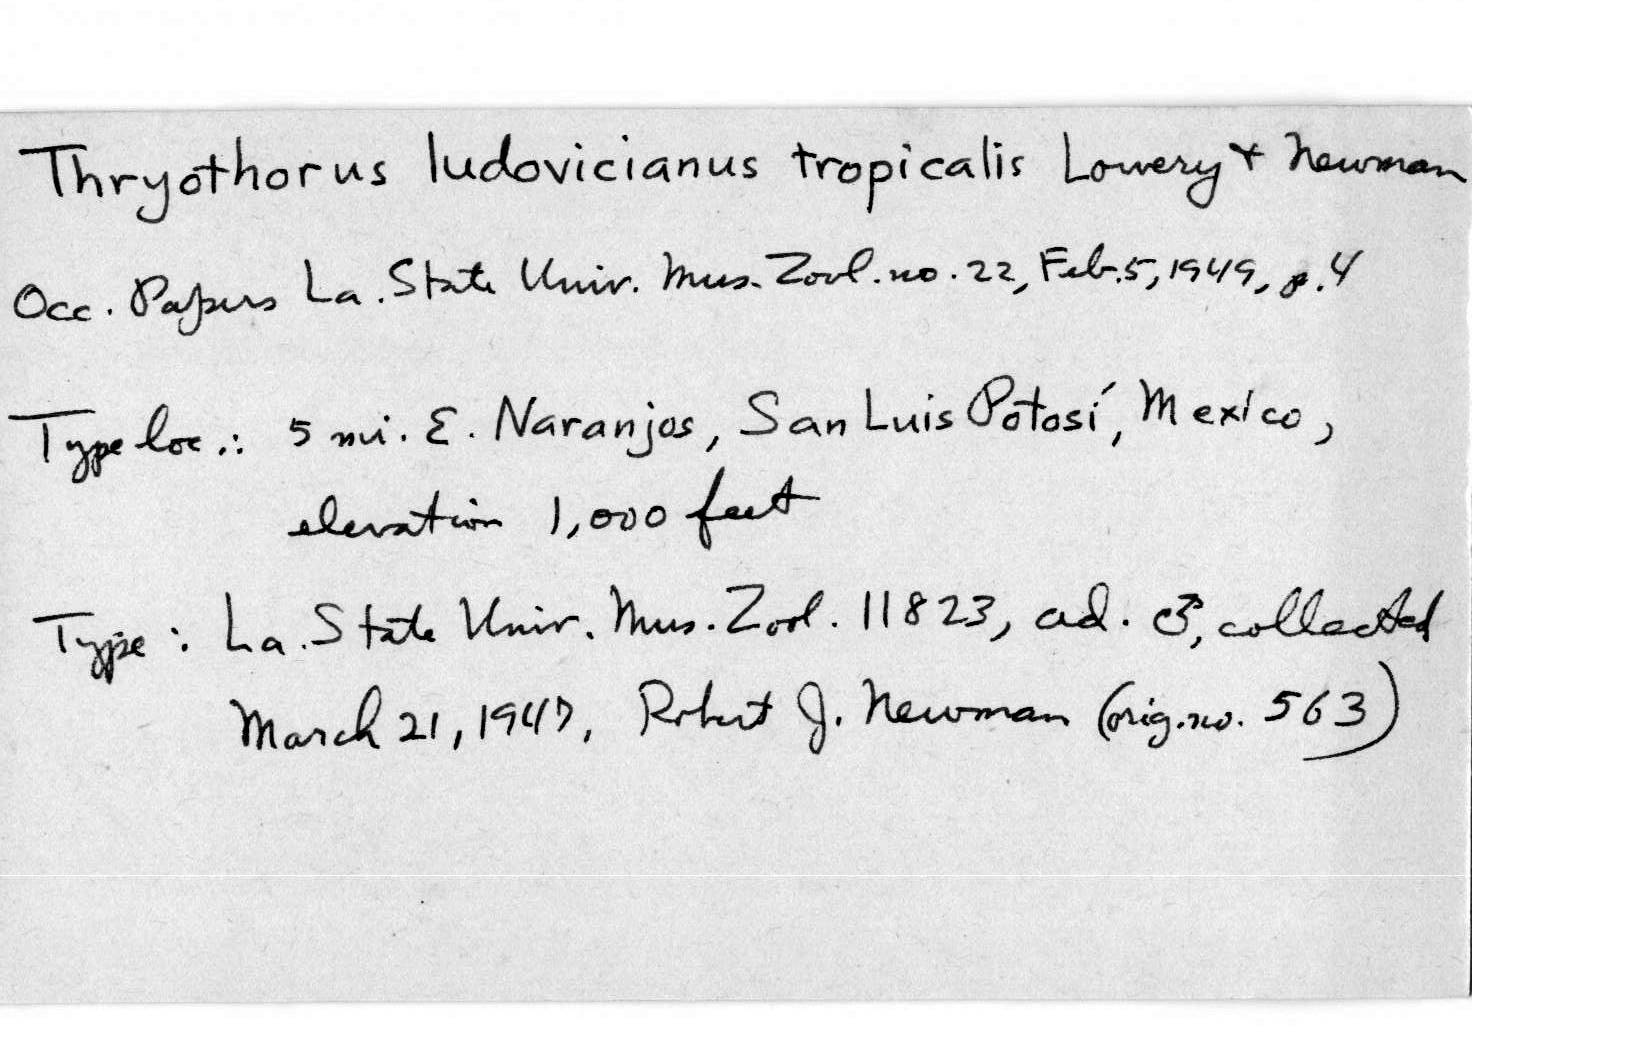 Thryothorus ludovicianus tropicalis Lowery & Newman
Occ. Papers La. State Univ. Mus. Zool. no. 22, Feb. 5, 1949, p. 4
Type loc.: 5 mi. E. Naranjos, San Luis Potosí, Mexico,
elevation 1,000 feet
Type: La. State Univ. Mus. Zool. 11823, ad. ♂, collected
March 21, 1947, Robert J. Newman (orig. no. 563)